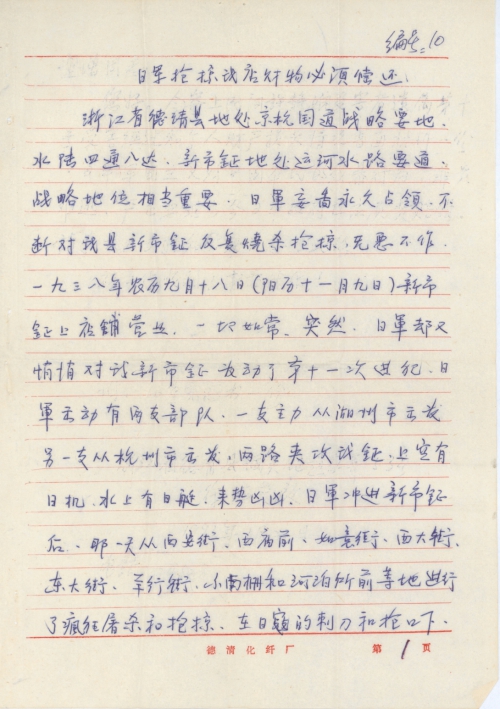 编号：10
日军抢掠该店财物必须偿还．
浙江省德清县地处京杭国道战略要地．
水陆四通八达．新市镇地处运河水路要道．
战略地位相当重要．日軍妄图永久占领．不
断对该县新市镇反复烧杀抢掠．无恶不作．
一九三八年农历九月十八日(阳历十一月九日)新市
镇上店铺营业．一切如常、突然．日軍却又
悄悄对该新市镇发动了第十一次进犯．日
軍出动有两支部队．一支主力从湖州市出发
另一支从杭州市出发．两路夹攻该镇．上空有
日机．水上有日艇．来势凶凶．日軍冲进新市镇
后．那一天从西安街、西庙前、如意街、西大街、
东大街、羊行街、小南栅和河泊所前等地进行
了疯狂屠杀和抢掠．在日寇的刺刀和枪口下．
德清化纤厂 第 1 页